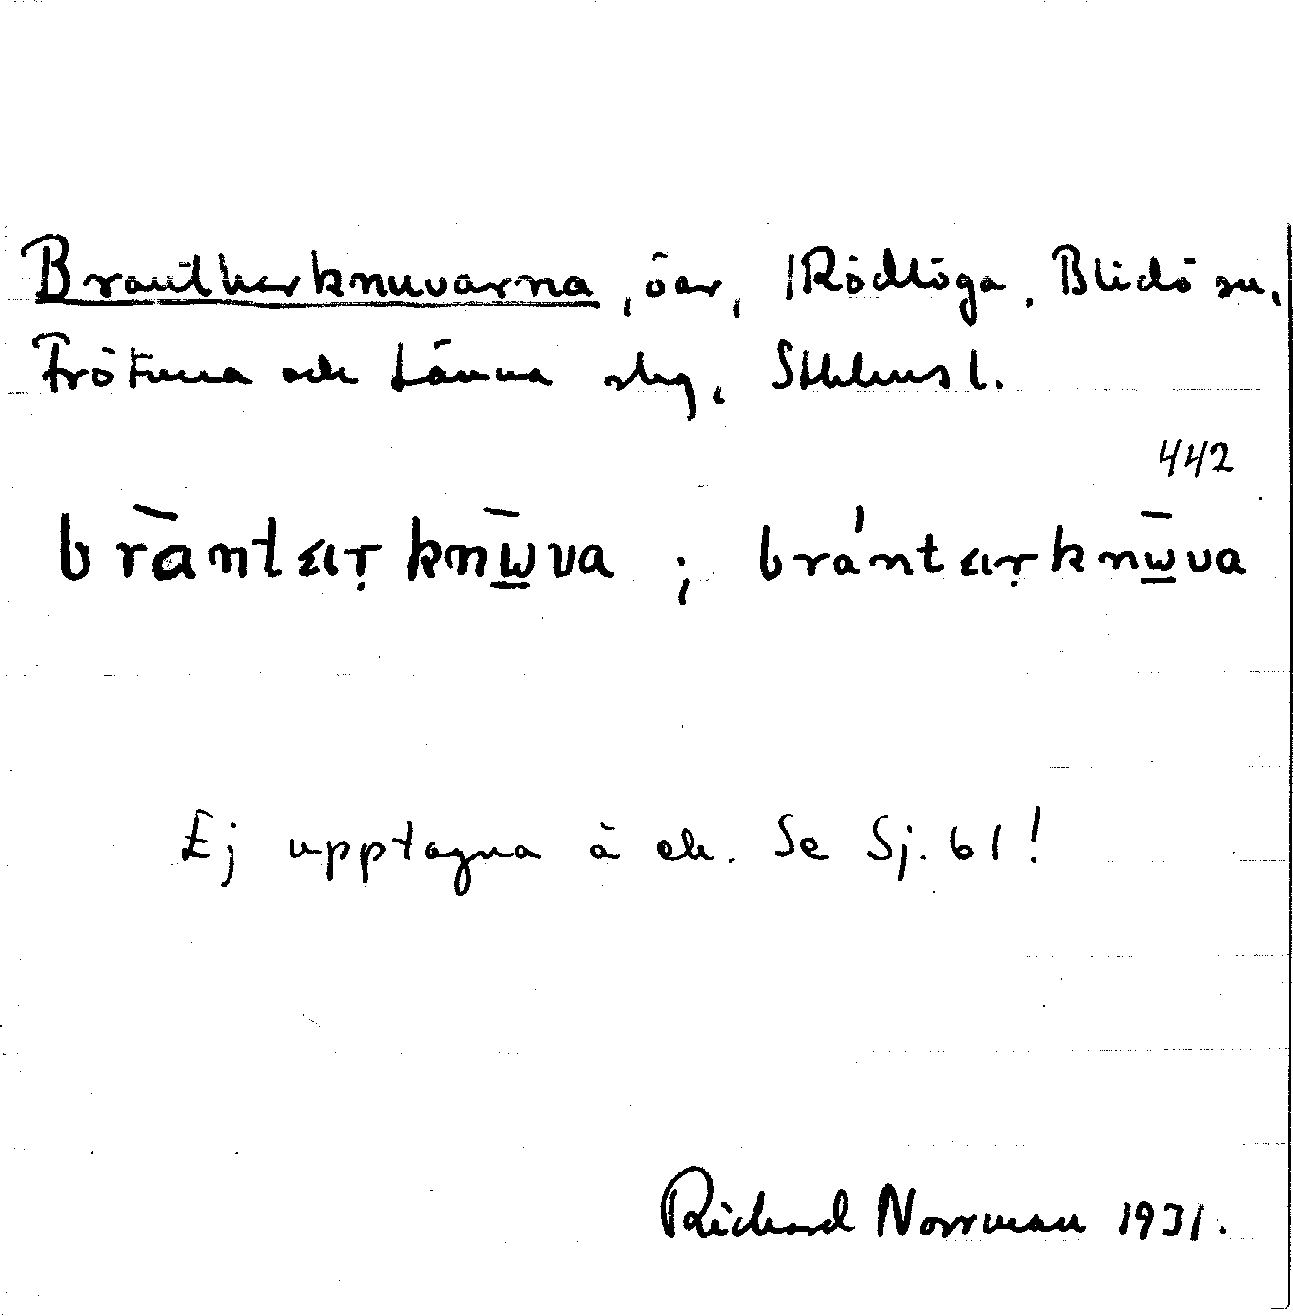 Brantharknuvarna, öar, Rödlöga, Blidö sn,
Frötuna och Länna skg, Sthlms l.
442
bräntarknūva ; brántarknūva
Ej upptagna å ek. Se Sj. 61!
Richard Norrman 1931.